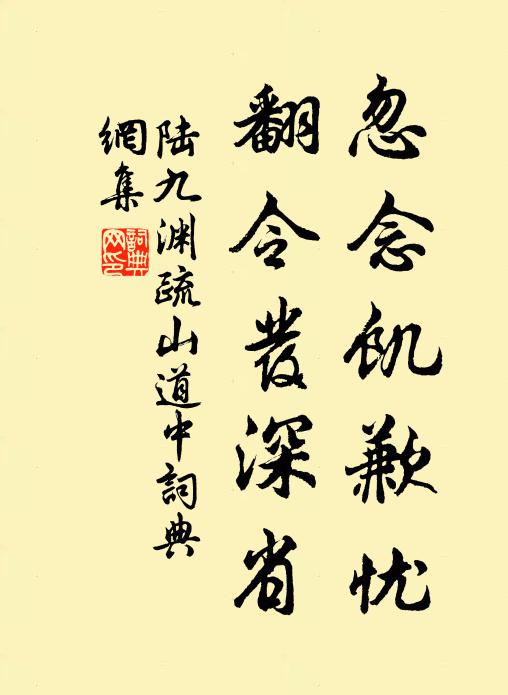 忽念飢歉忧
翻令發深省
陆九渊疏山道中詞典
網集
詞典網印